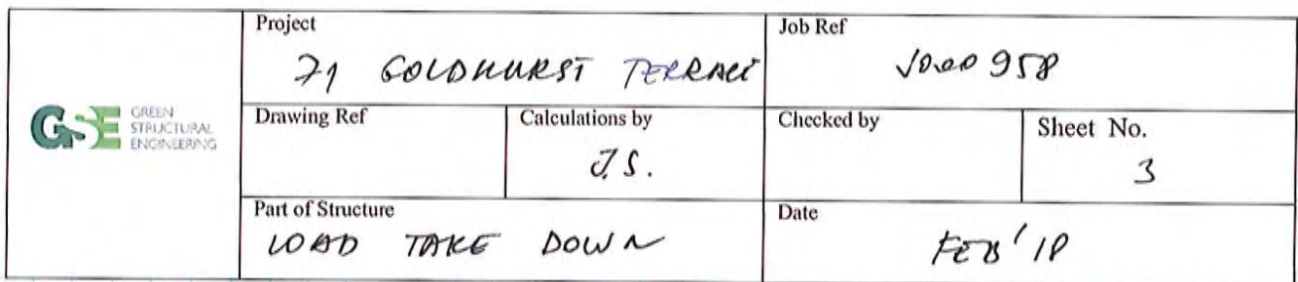 GSE GREEN
STRUCTURAL
ENGINEERING
Project
71 GOLDHURST TERRACE
Job Ref
Drawing Ref
Calculations by
J.S.
Checked by
Sheet No.
3
Part of Structure
LOAD TAKE DOWN
Date
FEB'18